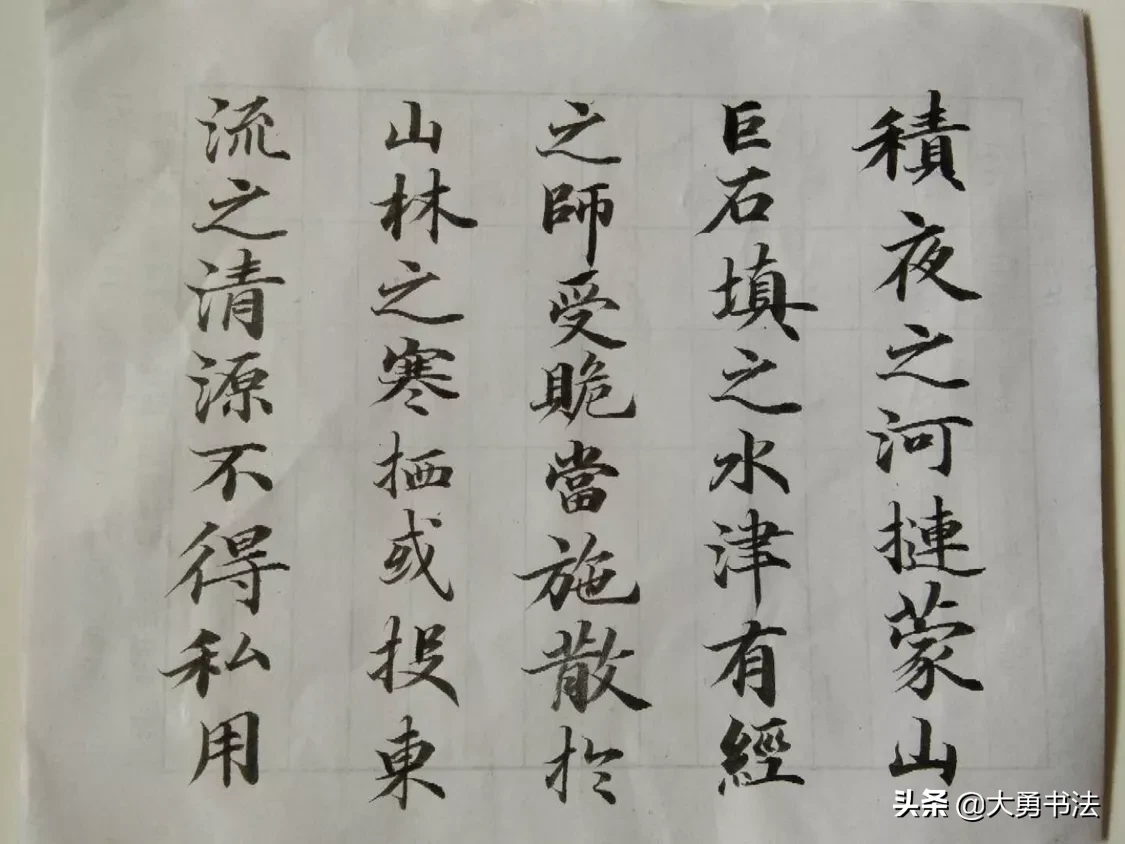 積夜之河摙蒙山
巨石填之水津有經
之師受賍當施散於
山林之寒栖或投東
流之清源不得私用
头条 @大勇书法